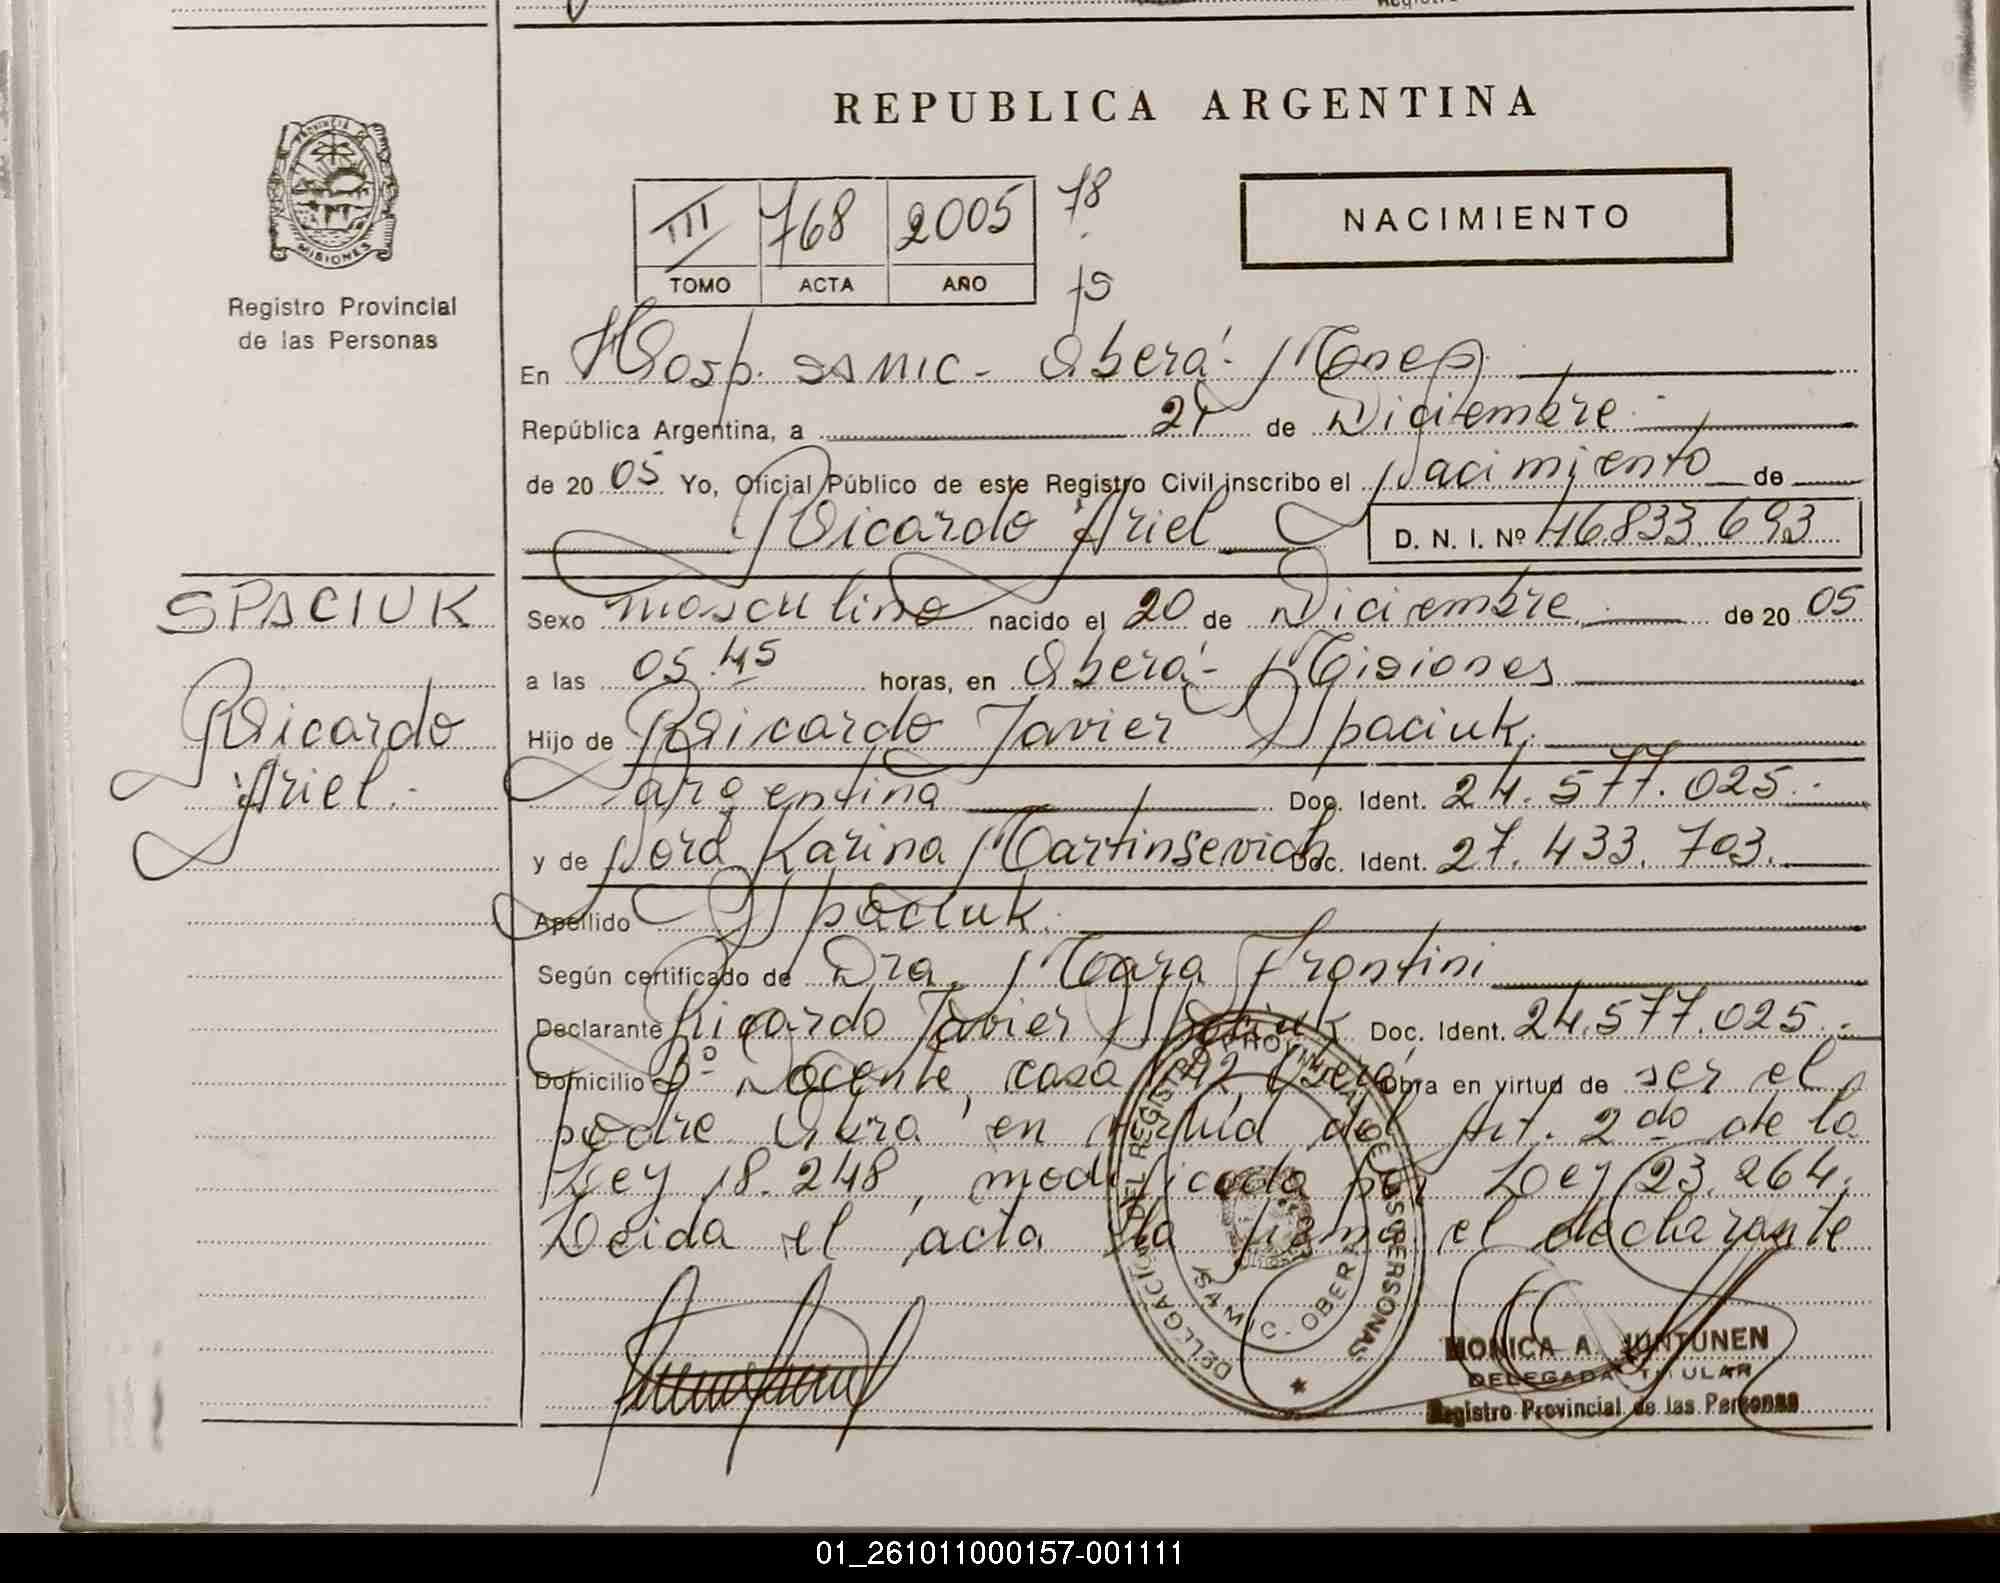 REPUBLICA ARGENTINA
PROVINCIA DE
MISIONES
Registro Provincial
de las Personas
III 768 2005 78
TOMO ACTA AÑO
NACIMIENTO
En Hosp. SAMIC - Oberá - Mnes
República Argentina, a 21 de Diciembre
de 20 05 Yo, Oficial Público de este Registro Civil inscribo el Nacimiento de
Ricardo Ariel D. N. I. Nº 46833.693
SPACIUK
Ricardo
Ariel.-
Sexo masculino nacido el 20 de Diciembre de 20 05
a las 05.45 horas, en Oberá - Misiones
Hijo de Ricardo Javier Spaciuk
argentina Doc. Ident. 24.577.025.-
y de Nora Karina Martinsevich Doc. Ident. 27.433.703.
Apellido Spaciuk.
Según certificado de Dra. Mara Frontini
Declarante Ricardo Javier Spaciuk Doc. Ident. 24.577.025.-
Domicilio Bº Docente, casa 142 Oberá Obra en virtud de ser el
padre Obra en virtud del Art. 2do de la
Ley 18.248, modificada por Ley 23.264.
Leida el acta la firma el declarante
DELEGACION DEL REGISTRO PROVINCIAL DE LAS PERSONAS
SAMIC - OBERA
MONICA A. JUNTUNEN
DELEGADA TITULAR
Registro Provincial de las Personas
01_261011000157-001111